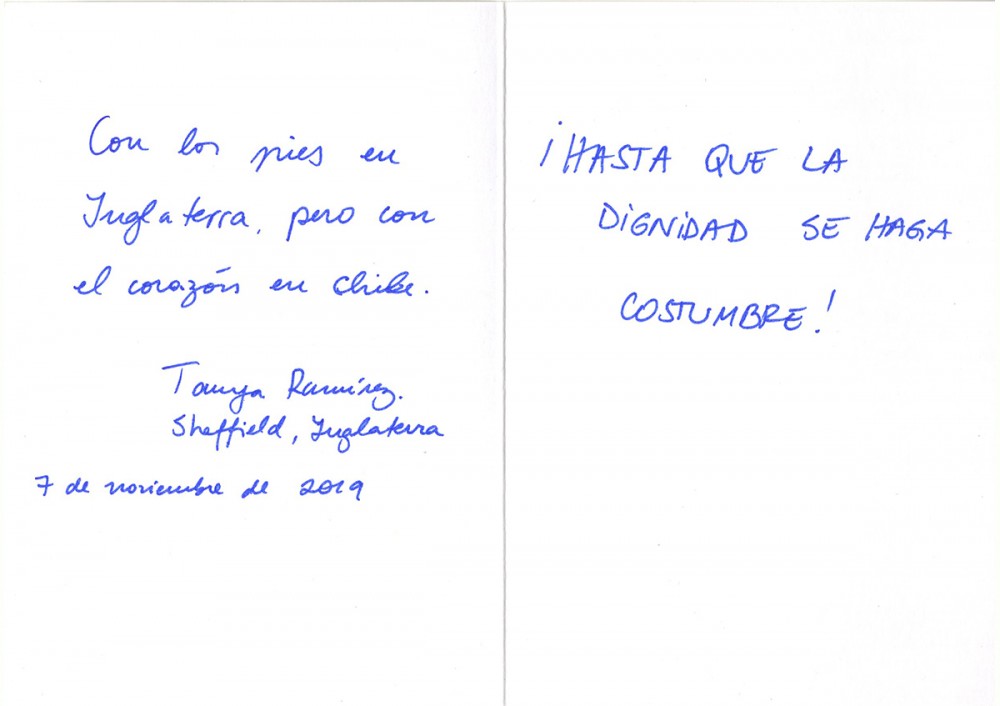 Con los pies en
Inglaterra, pero con
el corazón en Chile.
Tanya Ramírez.
Sheffield, Inglaterra
7 de noviembre de 2019
¡HASTA QUE LA
DIGNIDAD SE HAGA
COSTUMBRE!